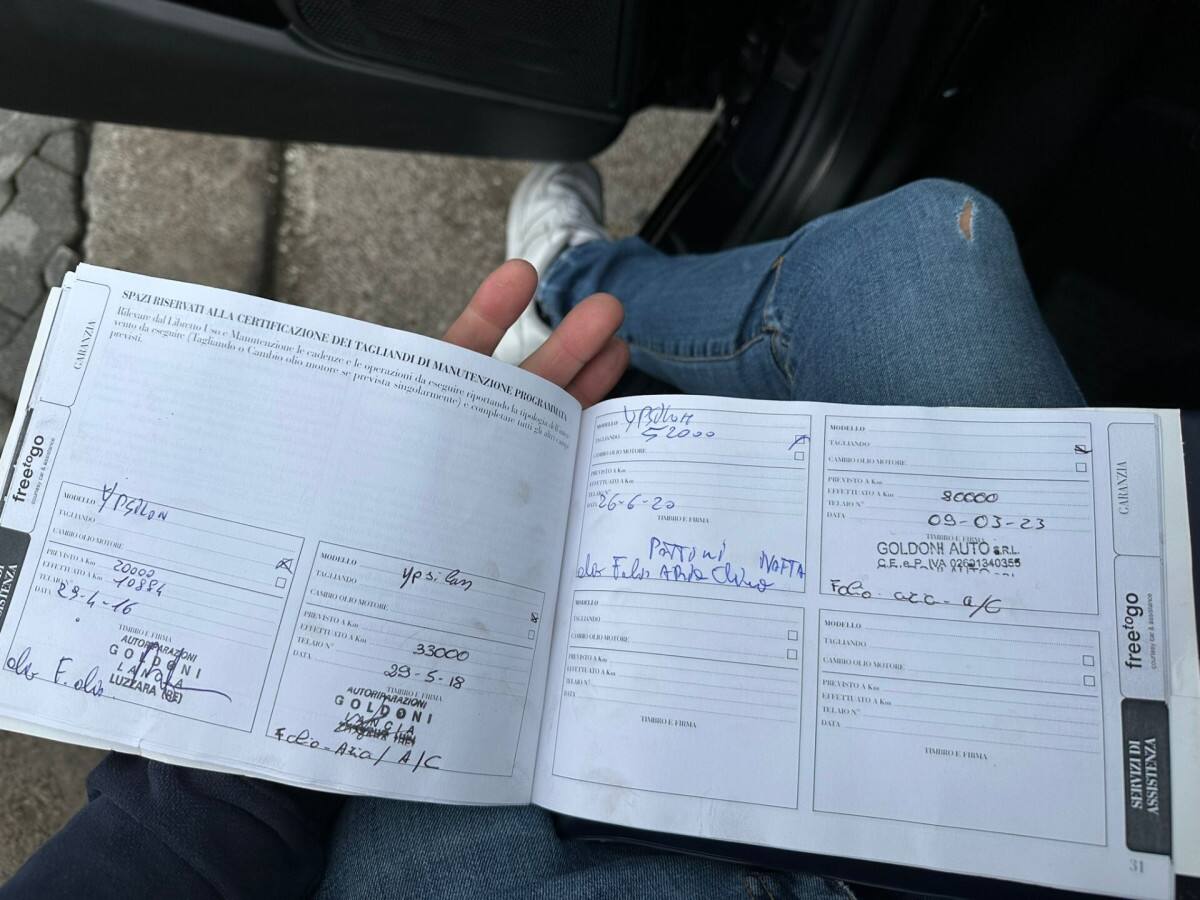 SPAZI RISERVATI ALLA CERTIFICAZIONE DEI TAGLIANDI DI MANUTENZIONE PROGRAMMATA
Rilevare dal Libretto Uso e Manutenzione le cadenze e le operazioni da eseguire riportando la tipologia dell'inter-
vento da eseguire (Tagliando o Cambio olio motore se prevista singolarmente) e completare tutti gli altri campi
previsti.
GARANZIA
freetogo
courtesy car & assistance
ASSISTENZA
MODELLO YPSILON
TAGLIANDO
CAMBIO OLIO MOTORE
PREVISTO A Km 20000
EFFETTUATO A Km 10884
TELAIO N°
DATA 29-4-16
TIMBRO E FIRMA
AUTORIPARAZIONI
GOLDONI
LANCIA
LUZZARA (RE)
olio F. olio
MODELLO Ypsilon
TAGLIANDO
CAMBIO OLIO MOTORE
PREVISTO A Km
EFFETTUATO A Km 33000
TELAIO N°
DATA 29-5-18
TIMBRO E FIRMA
AUTORIPARAZIONI
GOLDONI
LANCIA
F olio - Aria / A/C
MODELLO YPSILON
TAGLIANDO 52000
CAMBIO OLIO MOTORE
PREVISTO A Km
EFFETTUATO A Km
TELAIO N°
DATA 26-6-20
TIMBRO E FIRMA
MODELLO
TAGLIANDO
CAMBIO OLIO MOTORE
PREVISTO A Km
EFFETTUATO A Km 80000
TELAIO N°
DATA 09-03-23
TIMBRO E FIRMA
GOLDONI AUTO S.R.L.
C.F. e P. IVA 02691340355
F olio - aria - a/C
MODELLO
TAGLIANDO
CAMBIO OLIO MOTORE
PREVISTO A Km
EFFETTUATO A Km
TELAIO N°
DATA
TIMBRO E FIRMA
MODELLO
TAGLIANDO
CAMBIO OLIO MOTORE
PREVISTO A Km
EFFETTUATO A Km
TELAIO N°
DATA
TIMBRO E FIRMA
GARANZIA
freetogo
courtesy car & assistance
SERVIZI DI
ASSISTENZA
31